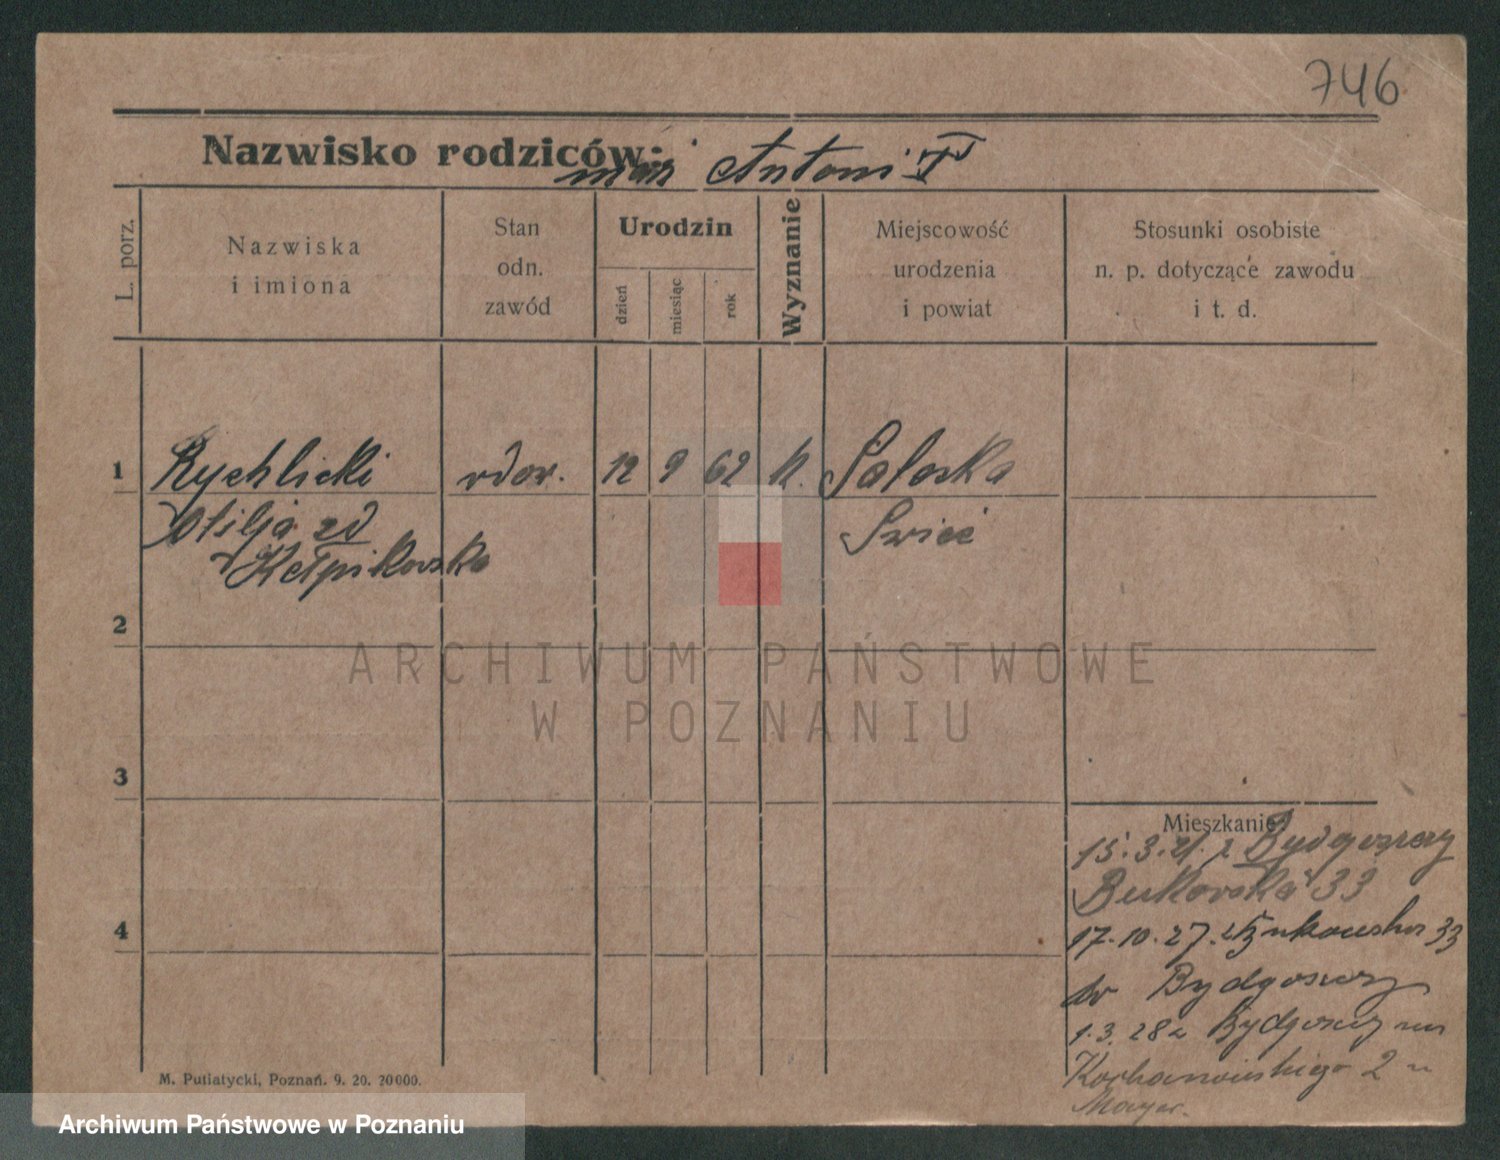 746
Nazwisko rodziców: mąż Antoni †
L. porz.
Nazwiska
i imiona
Stan
odn.
zawód
Urodzin
dzień
miesiąc
rok
Wyznanie
Miejscowość
urodzenia
i powiat
Stosunki osobiste
n. p. dotyczące zawodu
i t. d.
1 Rychlicki wdow. 12 9 62 k.
Otilja zd
Swiec
2
3
4
ARCHIWUM PAŃSTWOWE
W POZNANIU
Mieszkanie
15.3.21. z Bydgoszczy
Bukowska 33
17.10.27. Bukowska 33
do Bydgoszczy
1.3.28 z Bydgoszczy na
Kochanowskiego 2 u
Mayer.
M. Putiatycki, Poznań. 9. 20. 20000.
Archiwum Państwowe w Poznaniu